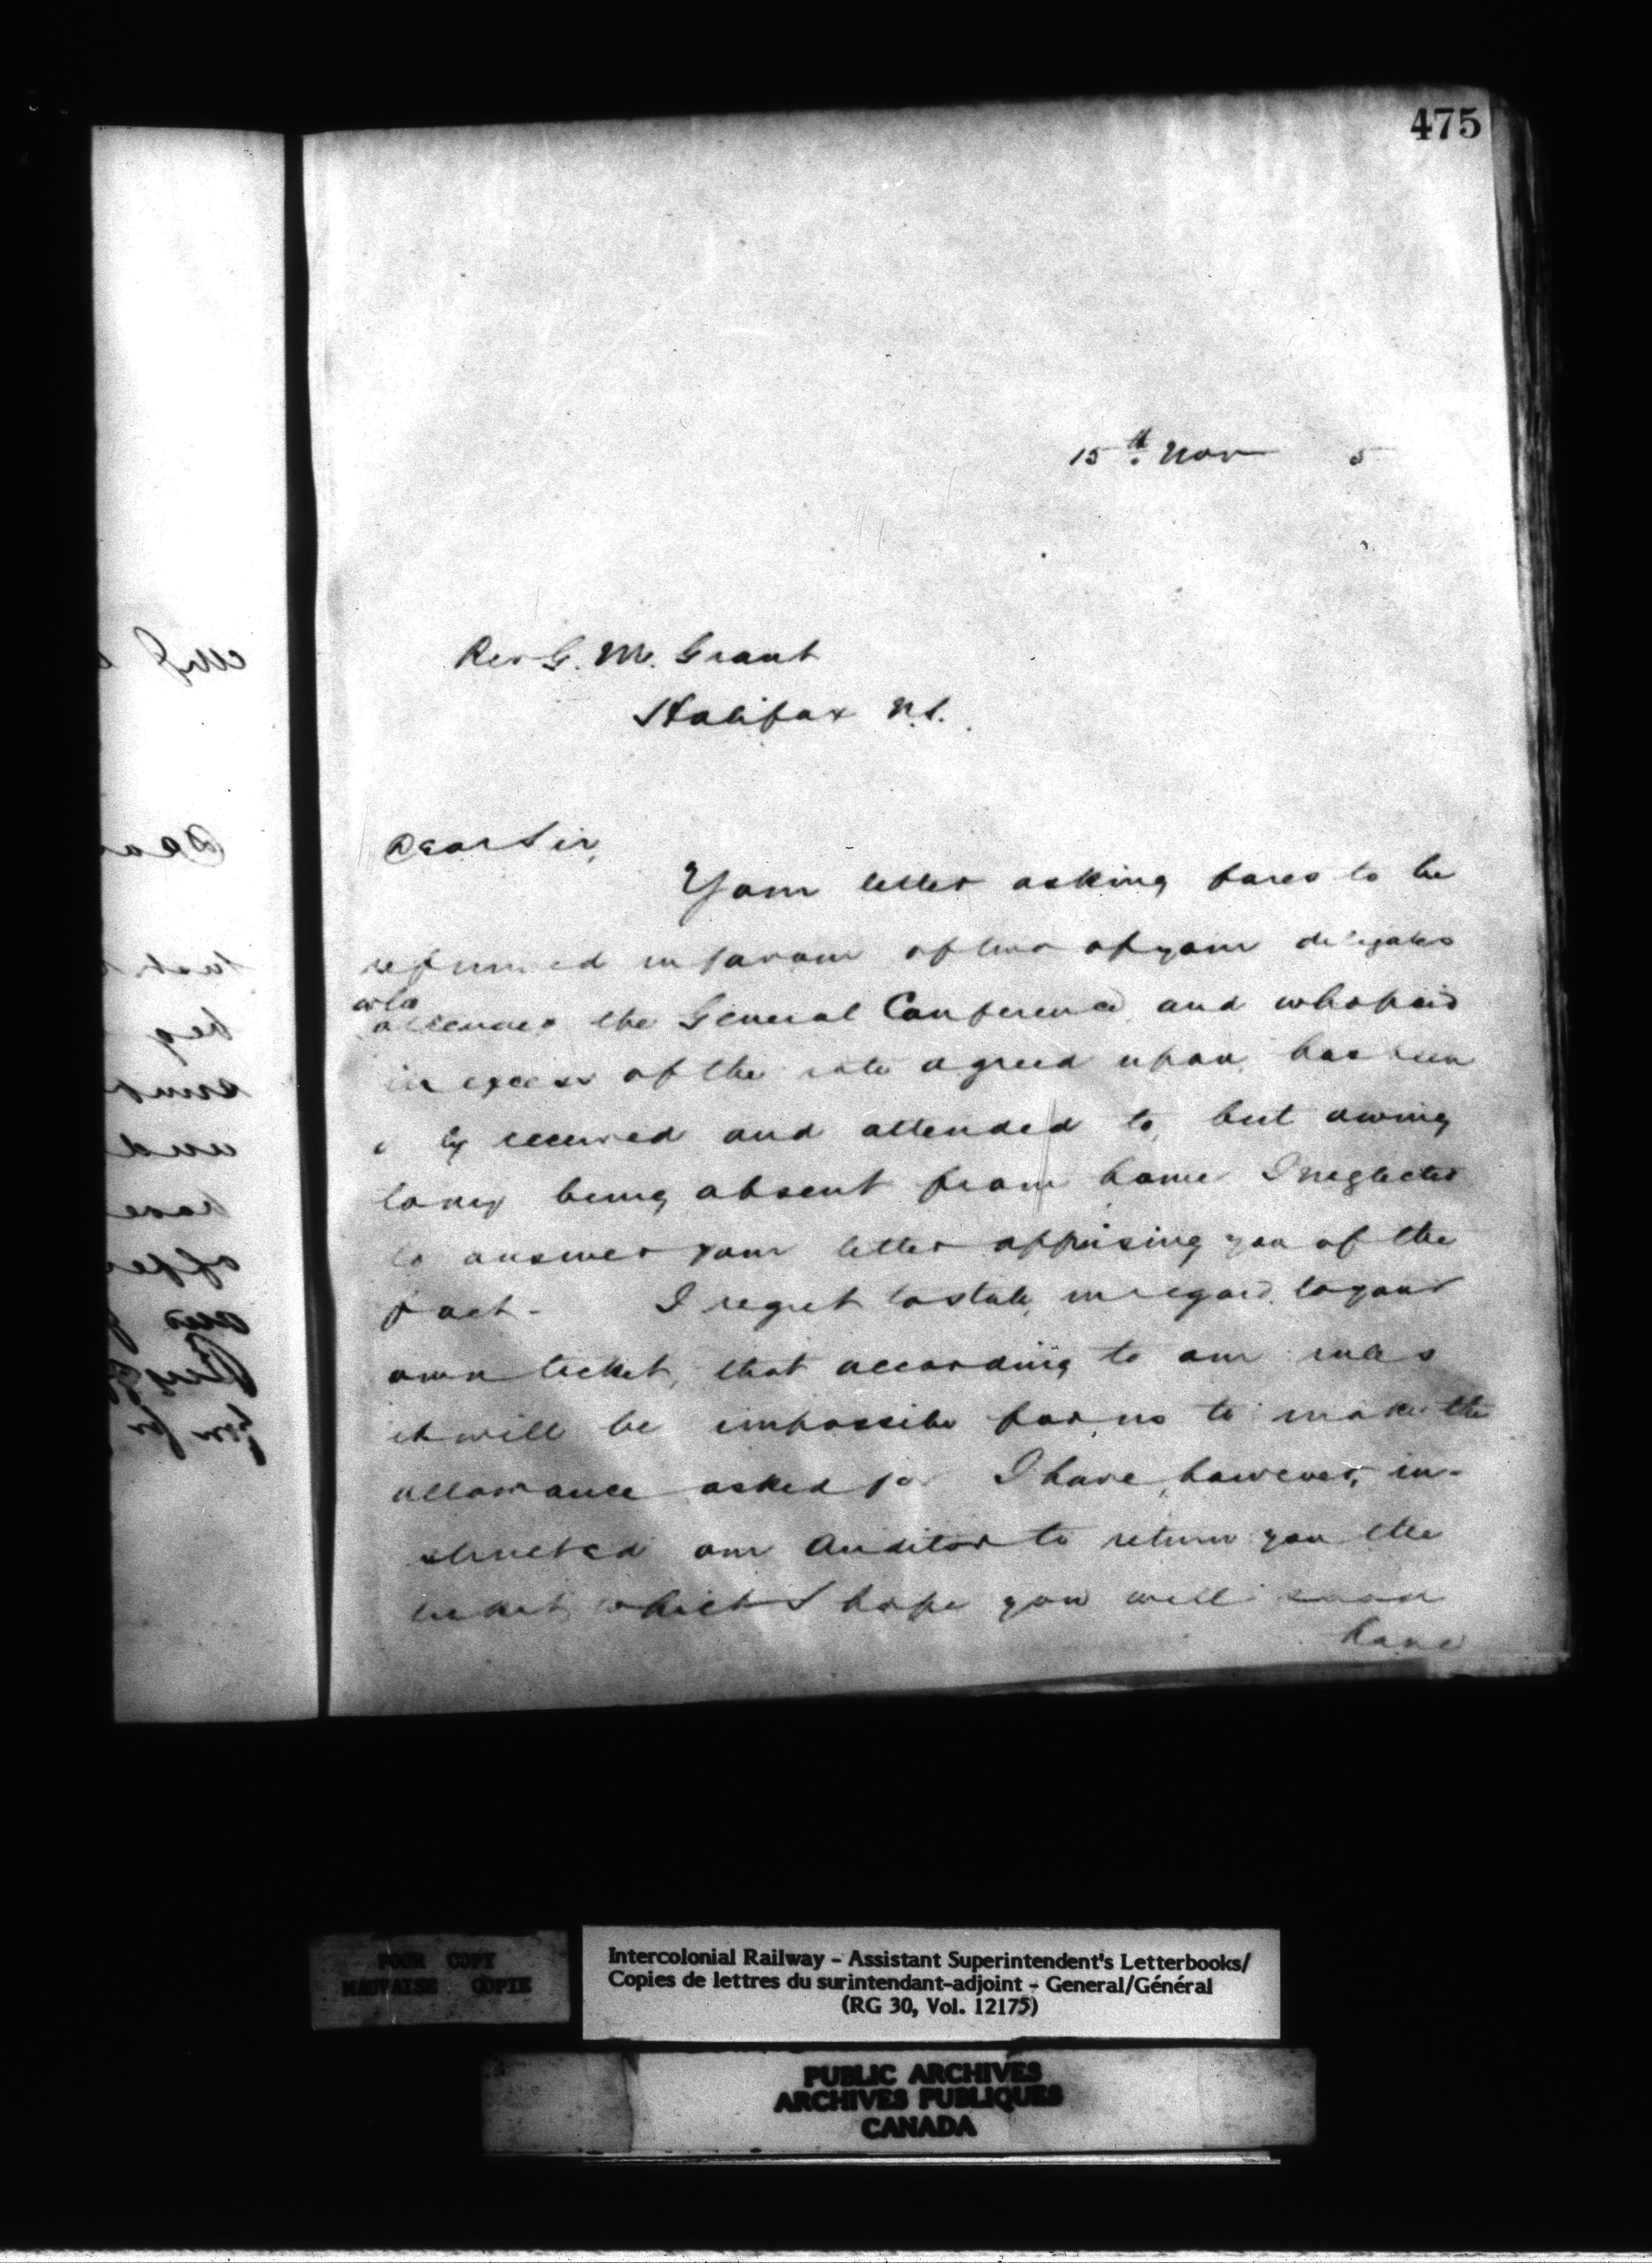 475
15th. Nov 5
Rev G. M. Grant
Halifax N.S.
Dear Sir,
Your letter asking fares to be
refunded in favour of two of your delegates
who
attended the General Conference and who paid
in excess of the rate agreed upon, has been
received and attended to, but owing
to my being absent from home I neglected
to answer your letter apprising you of the
fact. I regret to state, in regard to your
own ticket, that according to our rules
it will be impossible for us to make the
allowance asked for I have, however, in-
structed our Auditor to return you the
ticket, which I hope you will
have
POOR COPY
MAUVAISE COPIE
Intercolonial Railway - Assistant Superintendent's Letterbooks/
Copies de lettres du surintendant-adjoint - General/Général
(RG 30, Vol. 12175)
PUBLIC ARCHIVES
ARCHIVES PUBLIQUES
CANADA